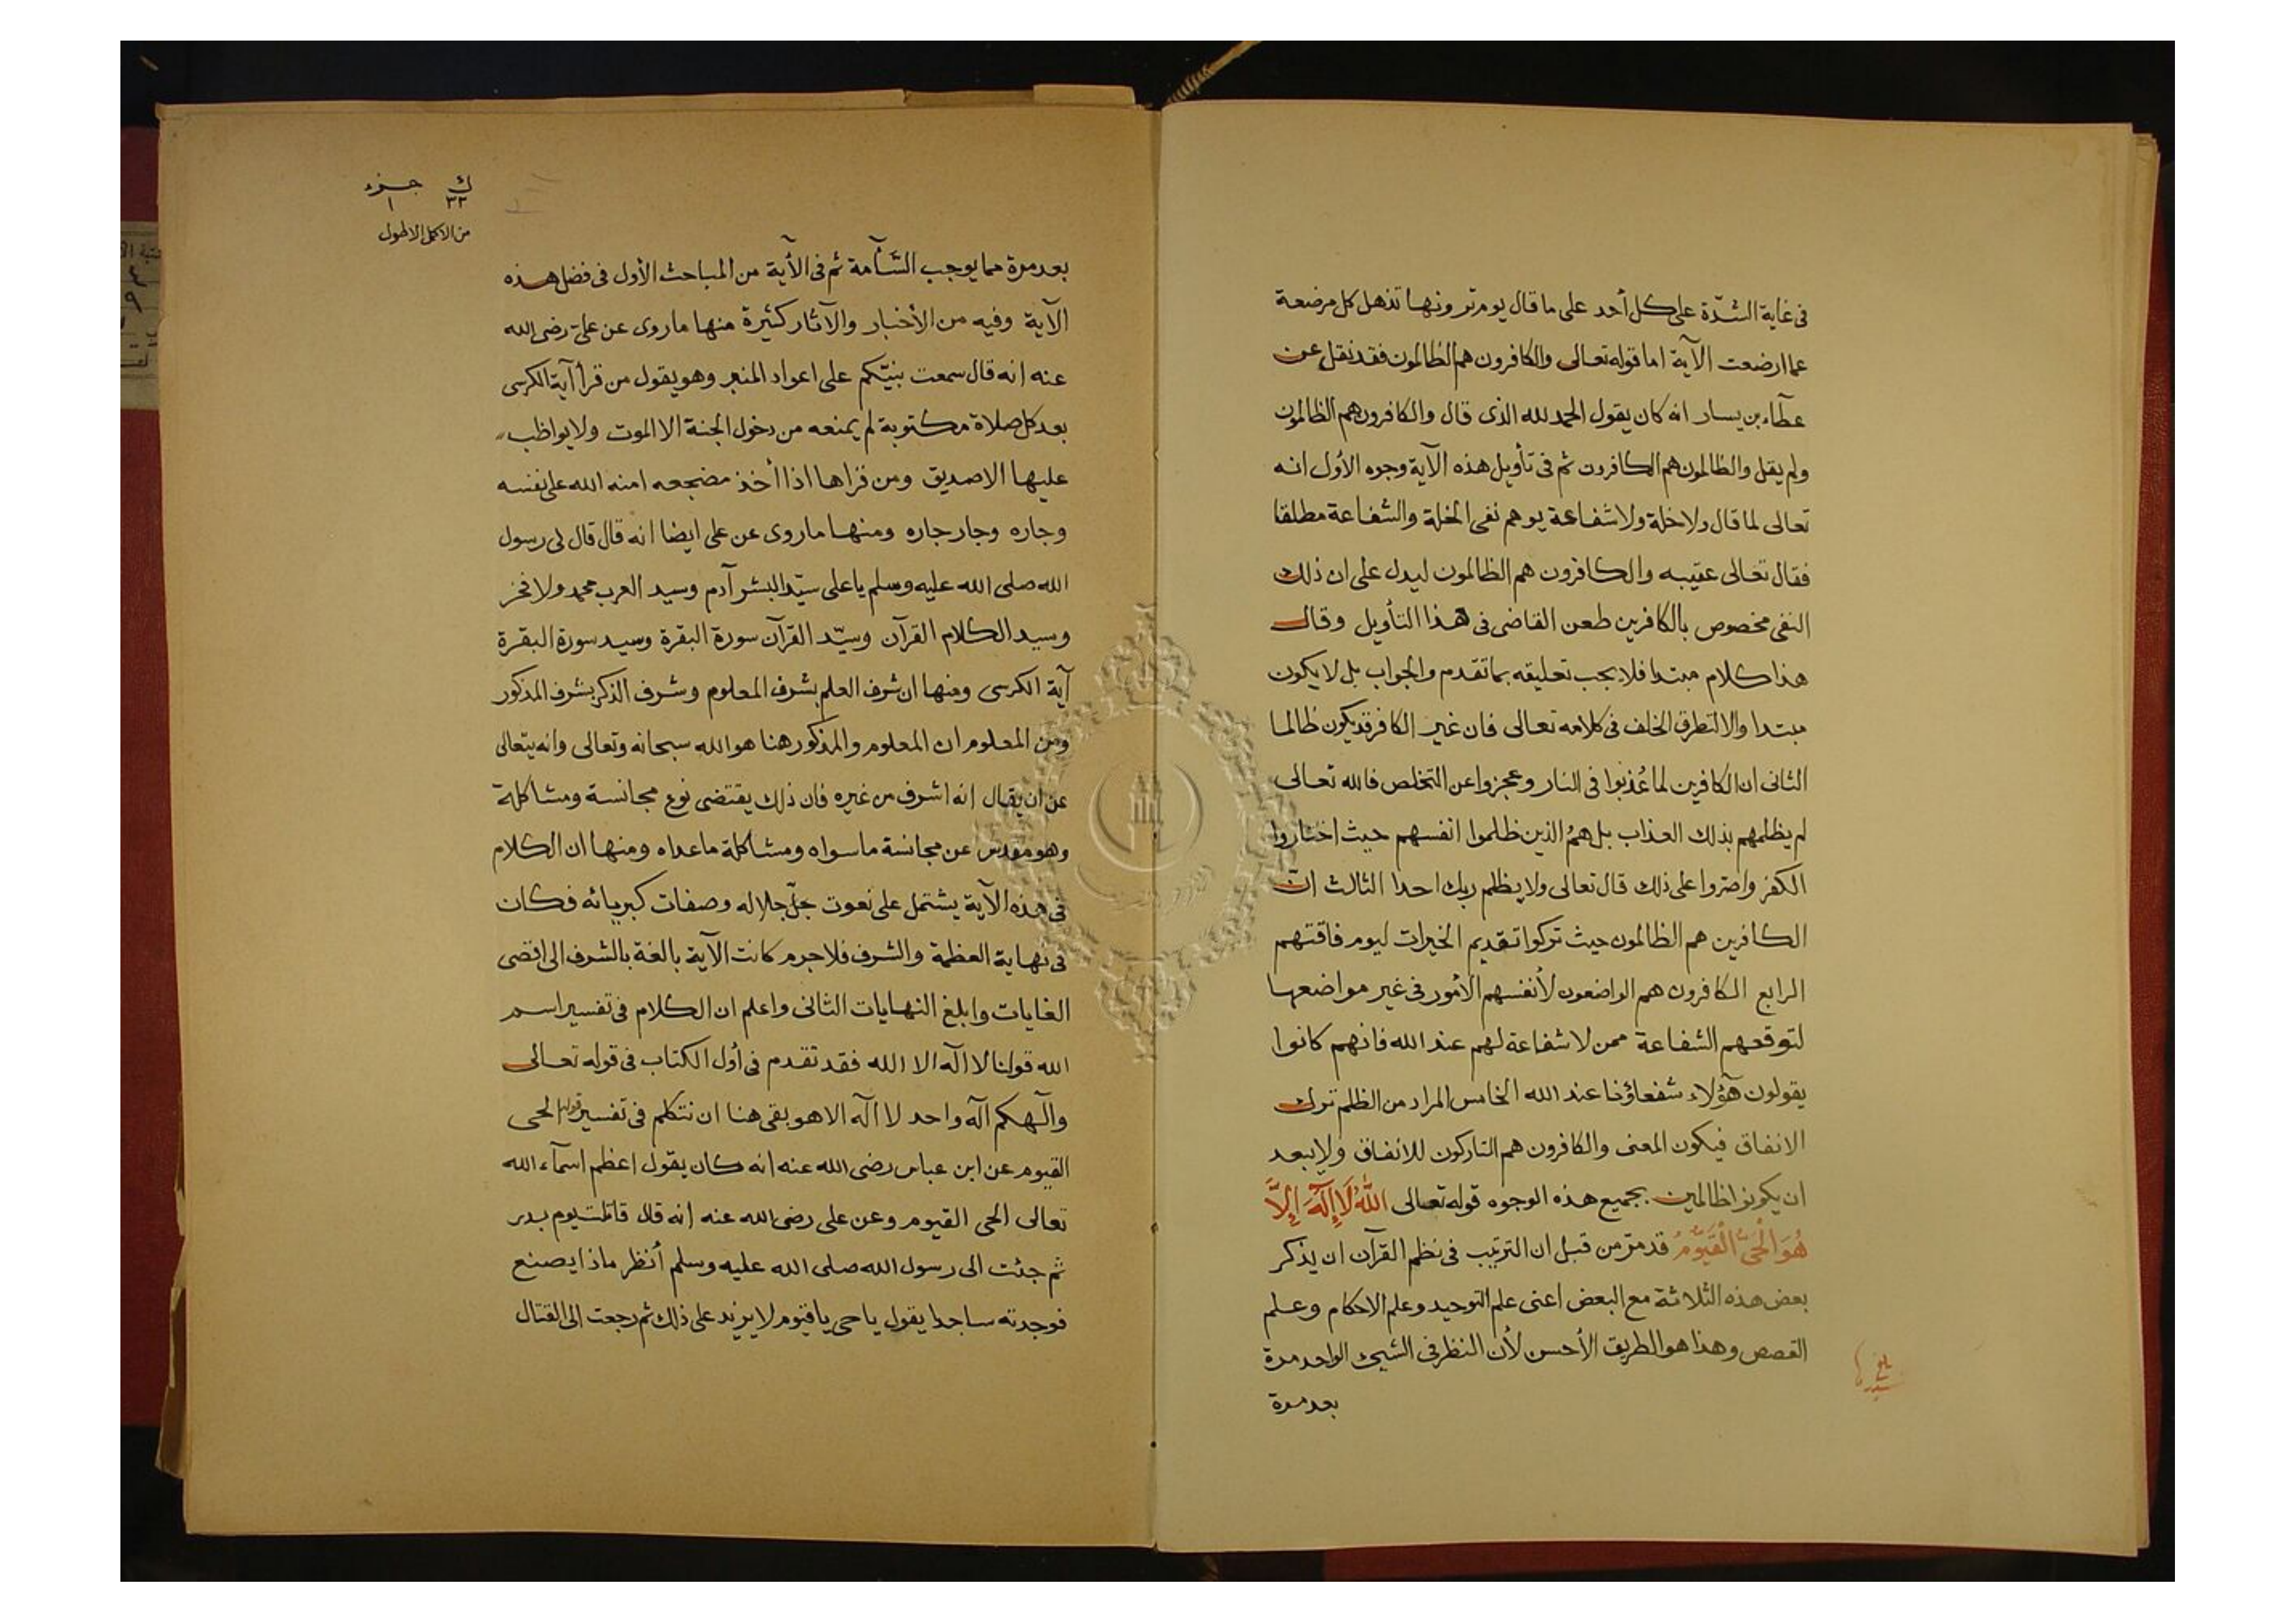 فى غاية الشدّة على كل أحد على ما قال يوم ترونها تذهل كل مرضعة
عما ارضعت الآية اما قوله تعالى والكافرون هم الظالمون فقد نقل عن
عطآء بن يسار انه كان يقول الحمد لله الذى قال والكافرون هم الظالمون
ولم يقل والظالمون هم الكافرون ثم فى تأويل هذه الآية وجوه الأول انه
تعالى لما قال ولا خلة ولا شفاعة يوهم نفى الخلة والشفاعة مطلقا
فقال تعالى عقيبه والكافرون هم الظالمون ليدل على ان ذلك
النفى مخصوص بالكافرين طعن القاضى فى هذا التأويل وقال
هذا كلام مبتدا فلا يجب تعليقه بما تقدم والجواب بل لا يكون
مبتدا والا لتطرق الخلف فى كلامه تعالى فان غير الكافر قد يكون ظالما
الثانى ان الكافرين لما عُذبوا فى النار وعجزوا عن التخلص فالله تعالى
لم يظلمهم بذلك العذاب بل همُ الذين ظلموا انفسهم حيث اختاروا
الكفر واصروا على ذلك قال تعالى ولا يظلم ربك احدا الثالث انّ
الكافرين هم الظالمون حيث تركوا تقديم الخيرات ليوم فاقتهم
الرابع الكافرون هم الواضعون لأنفسهم الأمور فى غير مواضعها
لتوقعهم الشفاعة ممن لا شفاعة لهم عند الله فانهم كانوا
يقولون هآؤلاء شفعاؤنا عند الله الخامس المراد من الظلم ترك
الانفاق فيكون المعنى والكافرون هم التاركون للانفاق ولا يبعد
ان يكونوا ظالمين بجميع هذه الوجوه قوله تعالى اللهُ لَا إِلَهَ إِلَّا
هُوَ الْحَىُّ الْقَيُّومُ قد مرّ من قبل ان الترتيب فى نظم القرآن ان يذكر
بعض هذه الثلاثة مع البعض اعنى علم التوحيد وعلم الاحكام وعلم
القصص وهذا هو الطريق الأحسن لأن النظر فى الشيئ الواحد مرة
بعد مرة
ك جزء
٣٣ ١
من الاكمل الاطول
بعد مرة مما يوجب السّأمة ثم فى الأية من المباحث الأول فى فضل هذه
الآية وفيه من الأخبار والآثار كثيرة منها ما روى عن على رضى الله
عنه انه قال سمعت نبيّكم على اعواد المنبر وهو يقول من قرأ آية الكرسى
بعد كل صلاة مكتوبة لم يمنعه من دخول الجنة الا الموت ولا يواظب
عليها الا صديق ومن قراها اذا أخذ مضجعه امنه الله على نفسه
وجاره وجار جاره ومنها ما روى عن على ايضا انه قال قال لى رسول
الله صلى الله عليه وسلم يا على سيّد البشر آدم وسيد العرب محمد ولا فخر
وسيد الكلام القرآن وسيّد القرآن سورة البقرة وسيد سورة البقرة
آية الكرسى ومنها ان شرف العلم بشرف المعلوم وشرف الذكر بشرف المذكور
ومن المعلوم ان المعلوم والمذكور هنا هو الله سبحانه وتعالى وانه يتعالى
عن ان يقال انه اشرف من غيره فان ذلك يقتضى نوع مجانسة ومشاكلة
وهو مقدس عن مجانسة ما سواه ومشاكلة ما عداه ومنها ان الكلام
فى هذه الآية يشتمل على نعوت جلّ جلاله وصفات كبريائه فكان
فى نهاية العظمة والشرف فلا جرم كانت الآية بالغة بالشرف الى اقصى
الغايات وابلغ النهايات الثانى واعلم ان الكلام فى تفسير اسم
الله قولنا لا اله الا الله فقد تقدم فى أول الكتاب فى قوله تعالى
والٓهكم آله واحد لا اله الا هو بقى هنا ان نتكلم فى تفسير قوله الحى
القيوم عن ابن عباس رضى الله عنه انه كان يقول اعظم اسمآء الله
تعالى الحى القيوم وعن على رضى الله عنه انه قال قاتلت يوم بدر
ثم جئت الى رسول الله صلى الله عليه وسلم أنظر ماذا يصنع
فوجدته ساجدا يقول يا حى يا قيوم لا يزيد على ذلك ثم رجعت الى القتال